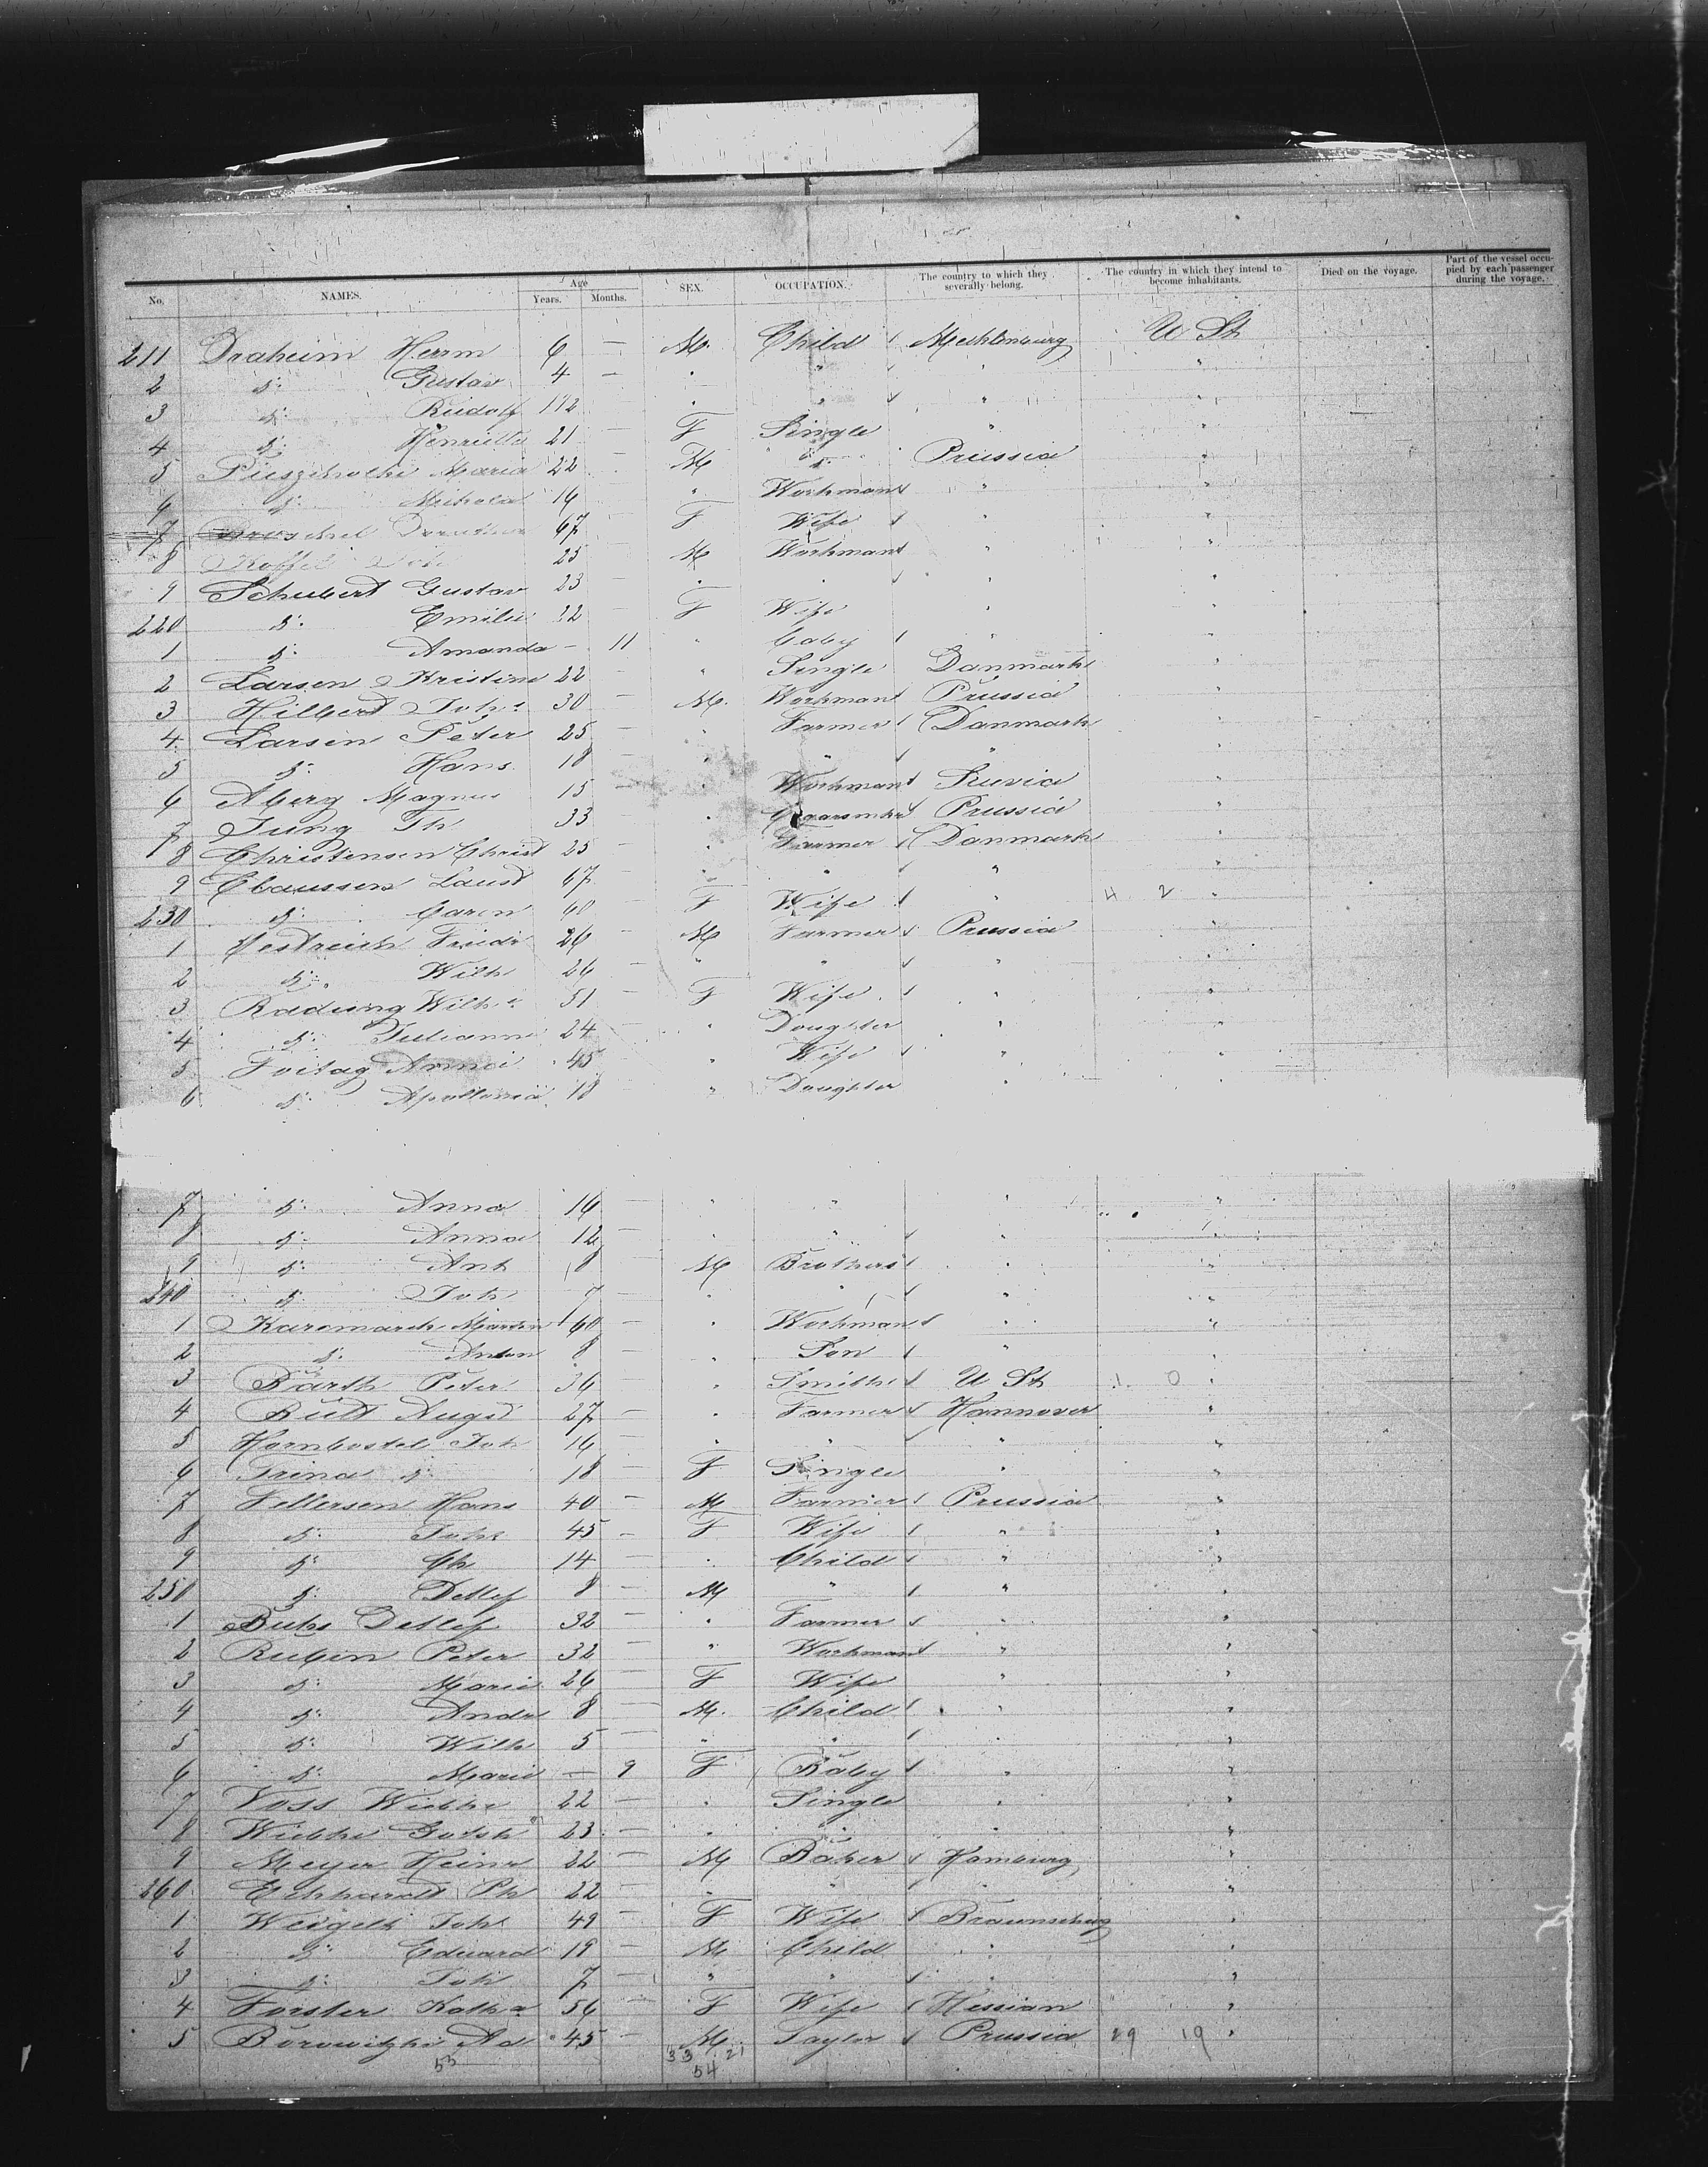 No. NAMES. Age Years. Months. SEX. OCCUPATION. The country to which they severally belong. The country in which they intend to become inhabitants. Died on the voyage. Part of the vessel occupied by each passenger during the voyage.
211 Draheim Herrm 6 — M. Child Mecklenburg U St
2 d: Gustav 4 — " " " "
3 d: Rudolf 1 1/2 " " " "
4 d: Henriette 21 F Single " "
5 Maria 22 M d: Prussia "
6 d: 16 " Workman " "
7 67 F Wife " "
8 25 M Workman " "
9 Schubert Gustav 23 — " " " "
220 d: Emilie 22 — F Wife " "
1 d: Amanda — 11 " Baby " "
2 Larsen Kristine 22 — " Single Danmark "
3 Hilbert Joh: 30 — M. Workman Prussia "
4 Larsen Peter 25 — " Farmer Danmark "
5 d: Hans 18 " " " "
6 Aberg Magnus 15 — " Workman "
7 Jung Th 33 " Prussia "
8 Christensen Christ 25 — " Farmer Danmark "
9 Claussen Laust 67 " " " "
230 d: Caren 60 — F Wife " 4 2 "
1 Oestreich Friedr 26 — M Farmer Prussia "
2 d: Wilh 26 — " " " "
3 Radung Wilh: 51 — F Wife " "
4 d: Julianne 24 — " Doughter " "
5 Anna 45 " Wife " "
6 d: Apollonia 18 " Doughter " "
7 d: Anna 16 — " " " "
8 d: Anna 12 — " " " "
9 d: Ant 8 M Brothers " "
240 d: Joh 7 — " " " "
1 Martin 60 — " Workman " "
2 d: Anton 8 — " Son " "
3 Barth Peter 36 " Smith U St 1 0 "
4 Rütt Augst 27 — " Farmer Hannover "
5 Hornbostel Joh 16 — " " " "
6 Trina d: 18 — F Single " "
7 Tellersen Hans 40 — M Farmer Prussia "
8 d: Joh: 45 — F Wife " "
9 d: Ch 14 — " Child " "
250 d: Detlef 8 — M " " "
1 Detlef 32 — " Farmer " "
2 Rubin Peter 32 — " Workman " "
3 d: Marie 26 — F Wife " "
4 d: Andr 8 — M. Child " "
5 d: Wilh 5 — " " " "
6 d: Marie — 9 F Baby " "
7 Voss Wiebke 22 — " Single " "
8 Wiebke 23 — " " " "
9 Meyer Heinr 22 — M Baker Hamburg "
260 Eckhardt Ph 22 — " " " "
1 Joh: 49 — F Wife Braunschwg "
2 d: Eduard 19 — M Child " "
3 d: Joh 7 — " " " "
4 Forster Kath: 56 — F Wife Hessian "
5 Ad 45 — M. Taylor Prussia 29 19 "
53 33 21
54